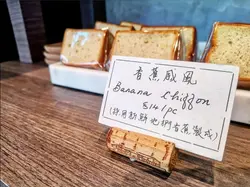 香蕉戚風
Banana Chiffon
$14/pc
(採用新鮮他們香蕉製成)